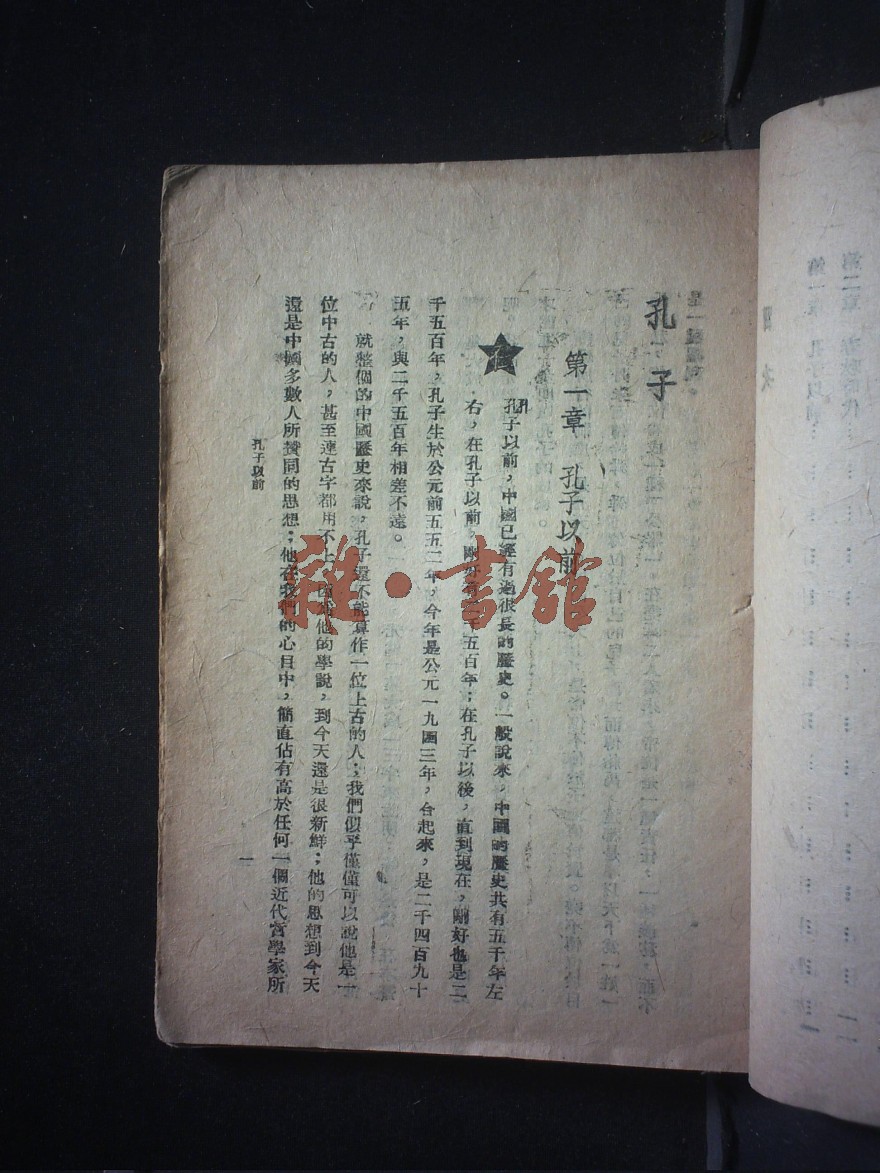 孔子
第一章 孔子以前
孔子以前，中國已經有過很長的歷史。一般說來，中國的歷史共有五千年左
右，在孔子以前，剛好有二千五百年；在孔子以後，直到現在，剛好也是二
千五百年，孔子生於公元前五五二年，今年是公元一九四三年，合起來，是二千四百九十
五年，與二千五百年相差不遠。
就整個的中國歷史來說，孔子還不能算作一位上古的人；我們似乎僅僅可以說他是一
位中古的人，甚至連古字都用不上，因為他的學說，到今天還是很新鮮；他的思想到今天
還是中國多數人所贊同的思想；他在我們的心目中，簡直佔有高於任何一個近代哲學家所
孔子以前
一
雜·書館
目 次
第一章 孔子以前
第二章